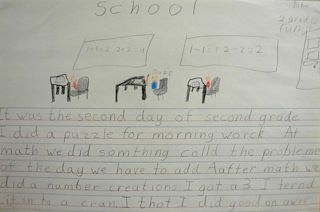 School
1+1=2 2+2=4
1-1= 2-2=2
It was the second day of second grade
I did a puzzle for morning worek. At
math we did somthing calld the probleme
of the day we have to add Aafter math we
did a number creations I got a 3 I ternd
it in to a cran. I thot I did good on